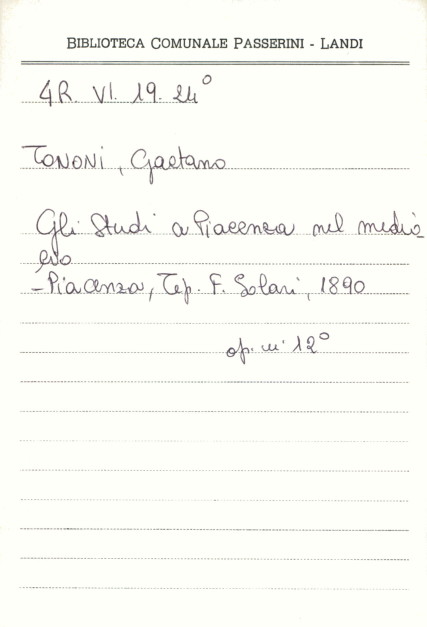 BIBLIOTECA COMUNALE PASSERINI - LANDI
4R. VI. 19. 24°
TONONI, Gaetano
Gli Studi a Piacenza nel medio
evo
- Piacenza, Tip. F. Solari, 1890
op. in 12°